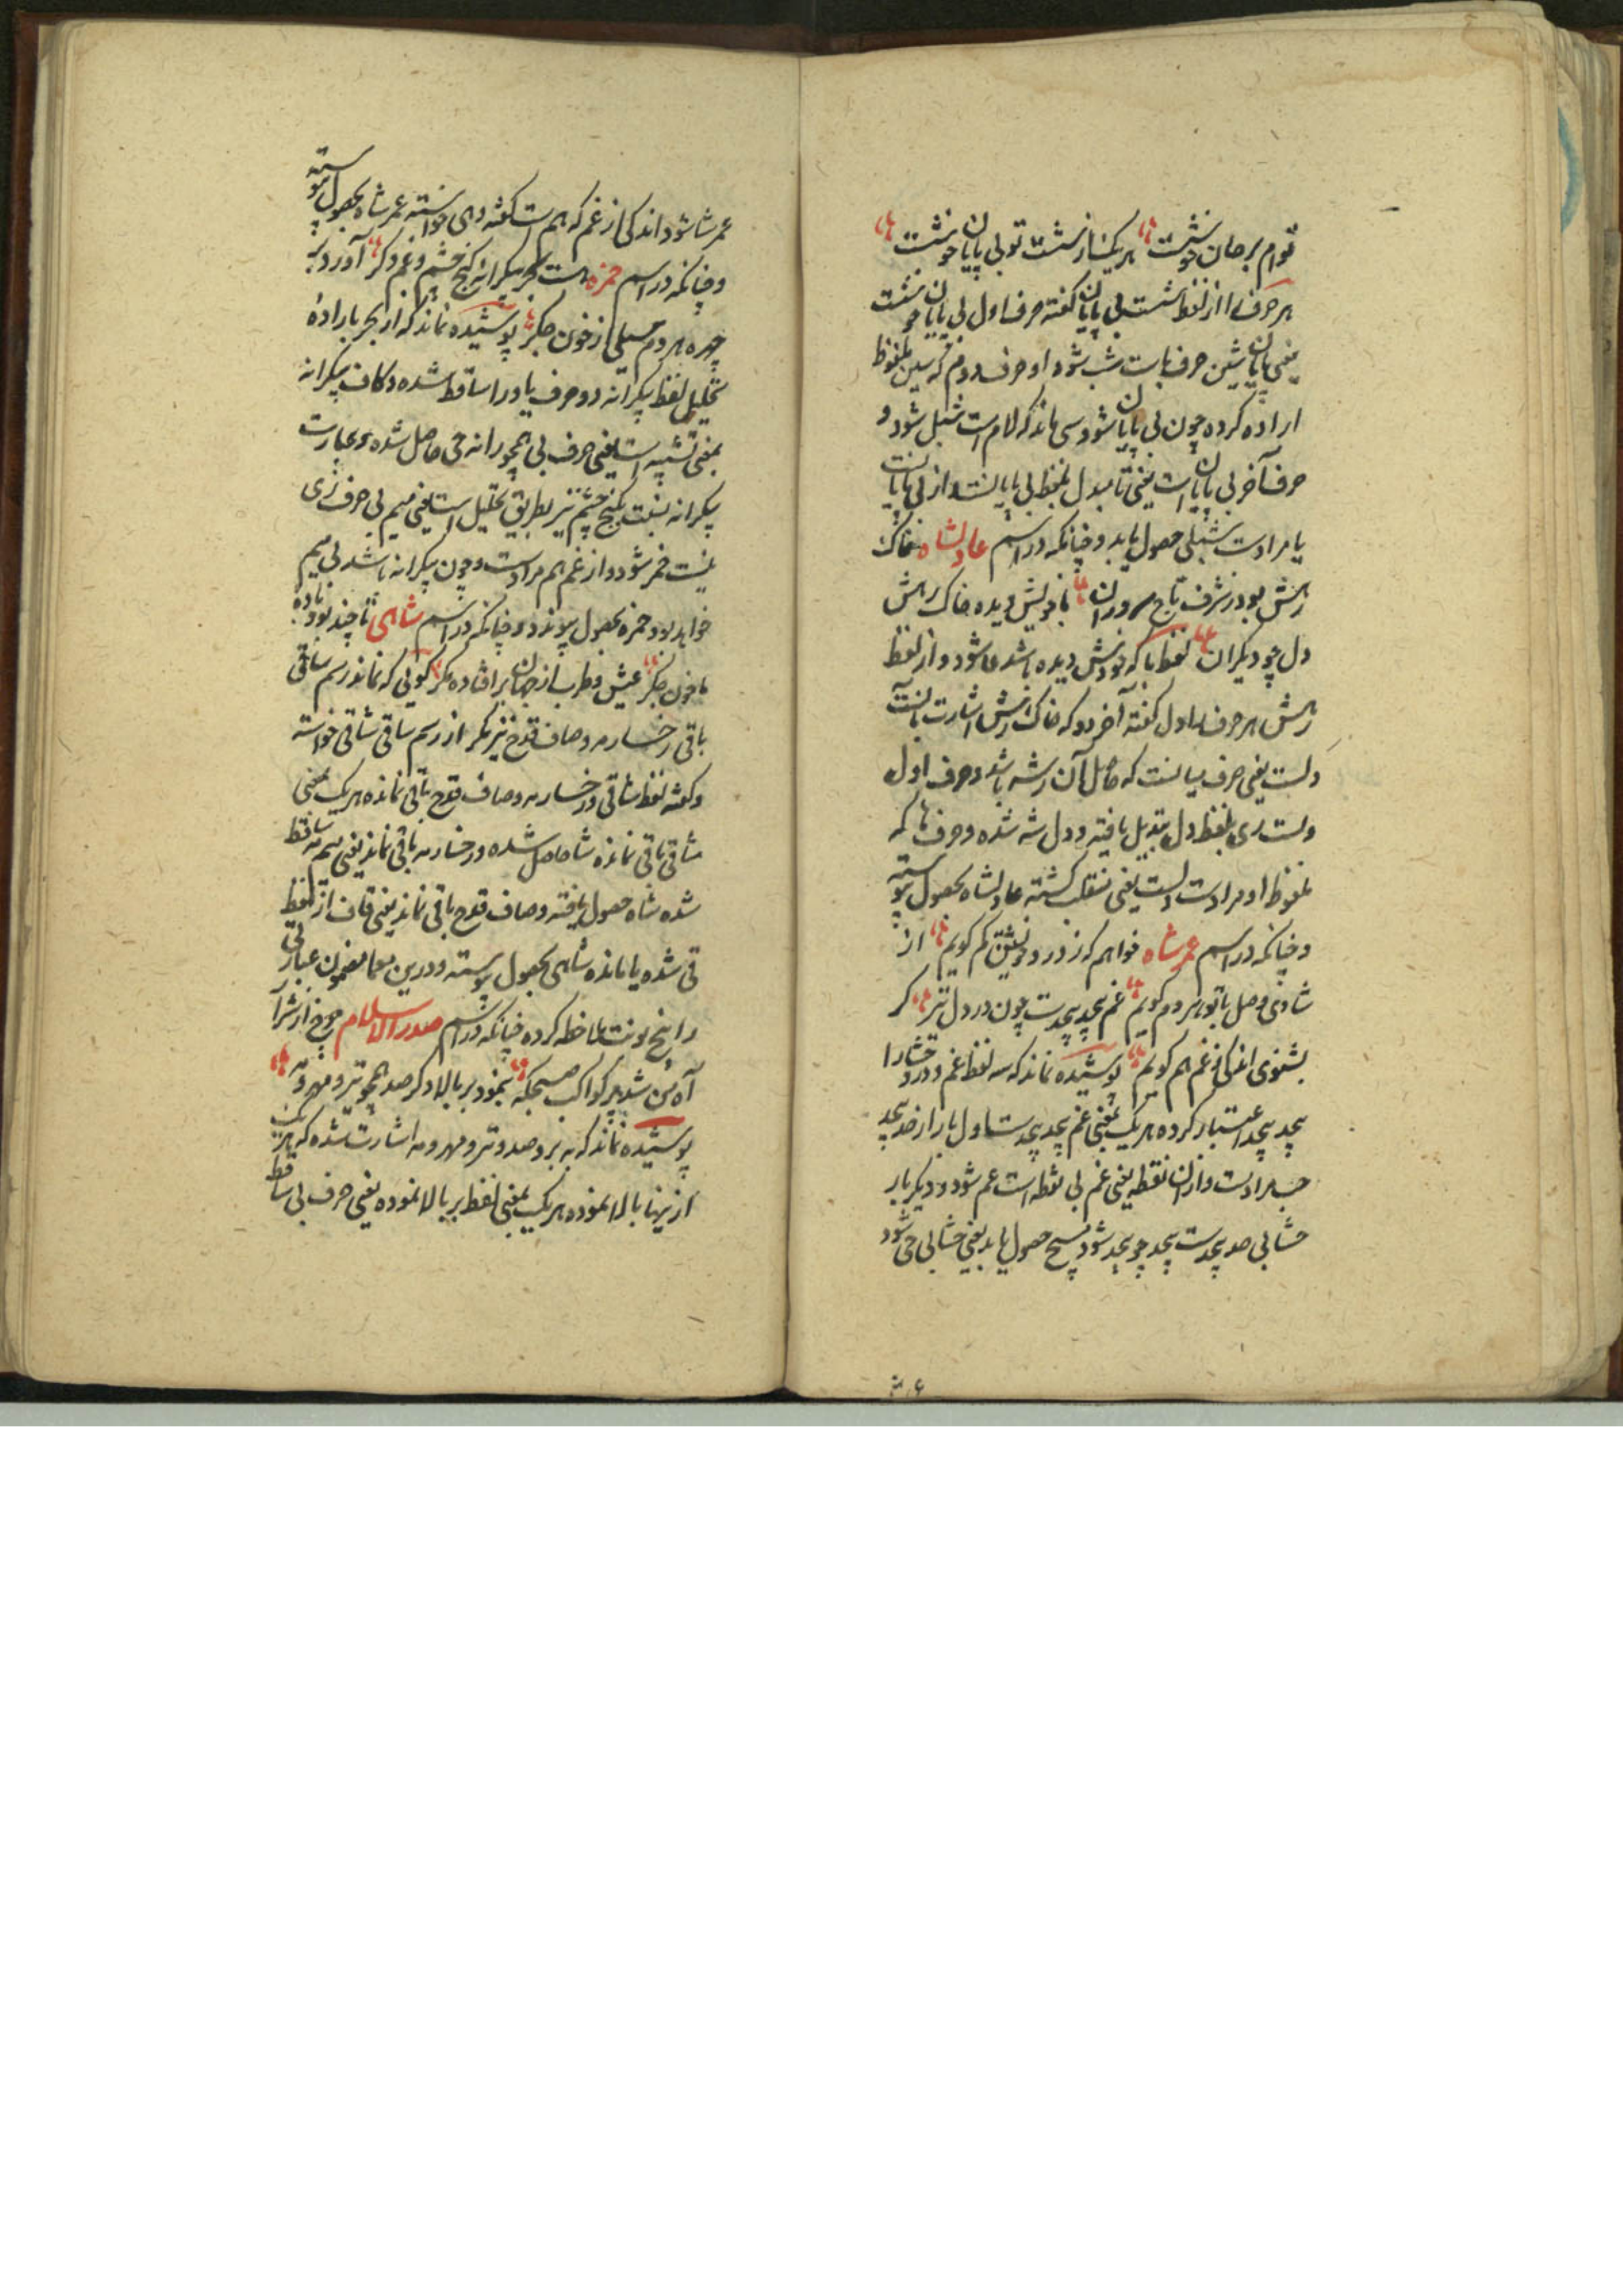 توام برجان خوشست هر یک از شست تو بی پایان خوشست
هر حرف را از لفظ شست بی پایان گفته حرف اول بی پایان خوشست
یعنی پایان شین حرف باست شب شود و حرف دوم که سین ملفوظ
اراده کرده چون بی پایان شود سی ماند که لام است شبل شود و
حرف آخر بی پایان است یعنی تا مبدل بلفظ بی پایانست و از بی پایان
یا مرادست شبلی حصول یابد و چنانکه در اسم عادلشاه خاک
رهش بود ز شرف تاج سروران با خویش دیده خاک رهش
دل چو دیگران لفظ با که خودش دیده باشد عا شود و از لفظ
رهش هر حرف اول گفته آخر دو که خاک رهش اشارت بآنست
دلست یعنی حرف بیانست که حاصل آن رشه باشد و حرف اول
ولست ری بلفظ دل تبدیل یافته و دل شه شده و حرف ها که
ملفوظ او مرادست دلست یعنی منقلب گشته عادلشاه بحصول پیوسته
و چنانکه در اسم عمر شاه خواهم که ز درد خویشتن کم گویم از
شادی وصل با تو هر دم گویم غم پیچد پیچدست چون در دل تنگ گر
بشنوی اندکی ز غم هم گویم پوشیده نماند که سه لفظ غم و درد خشا را
پیچد پیچد اعتبار کرده هر یک بمعنی غم پیچد پیچدست اول بار از ضد پیچد
مرادست و از آن نقطه یعنی غم بی نقطه است عم شود و دیگر بار
خشا بی صد پیچدست پیچد چو پیچد شود مسیح حصول یابد یعنی خشا بی خی شود
عمر شا شود اندکی از غم که هم است گفته و هی خواسته عمر شاه بحصول پیوسته
و چنانکه در اسم حمزه هست بحر بیکرانه کنج چشم و غم دگر آورد بر
چهره هر دم سیلی از خون جگر پوشیده نماند که از بحر با اراده
تحلیل لفظ بیکرانه دو حرف با و را ساقط شده و کاف بیکرانه
بمعنی تشبیه است یعنی حرف بی همچو رانه حی حاصل شده و عبارت
بیکرانه نسبت بکنج چشم نیز بطریق تحلیل است یعنی میم بی حرف زی
نیست خمر شود و از غم هم مرادست و چون بیکرانه باشد بی میم
خواهد بود حمزه بحصول پیوندد و چنانکه در اسم شاهی تا چند بود باده
ما خون جگر عیش و طرب از جهان بر افتاده مگر گوئی که نماند رسم ساقی
باقی رخسار مه و صاف قدح نیز مگر از رسم ساقی شاقی خواسته
و گفته لفظ شاقی و رخسار مه و صاف قدح باقی نمانده هر یک بمعنی
شاقی باقی نمانده شا حاصل شده و رخسار مه باقی نماند یعنی میم مه ساقط
شده شاه حصول یافته و صاف قدح باقی نماند یعنی قاف از لفظ
قی شده یا مانده شاهی بحصول پیوسته و درین معما مضمون عبارتی
را پنج نوبت ملاحظه کرده چنانکه در اسم صدر الاسلام چرخ از شرار
آه من شد پر کواکب صبحگه بنمود بر بالا دگر صد همچو تیر و مهر و مه
پوشیده نماند که به بر و صد و تیر و مهر و مه اشارت شده که هر یک
از اینها بالا نموده هر یک بمعنی لفظ بر بالا نموده یعنی حرف بی ساقط